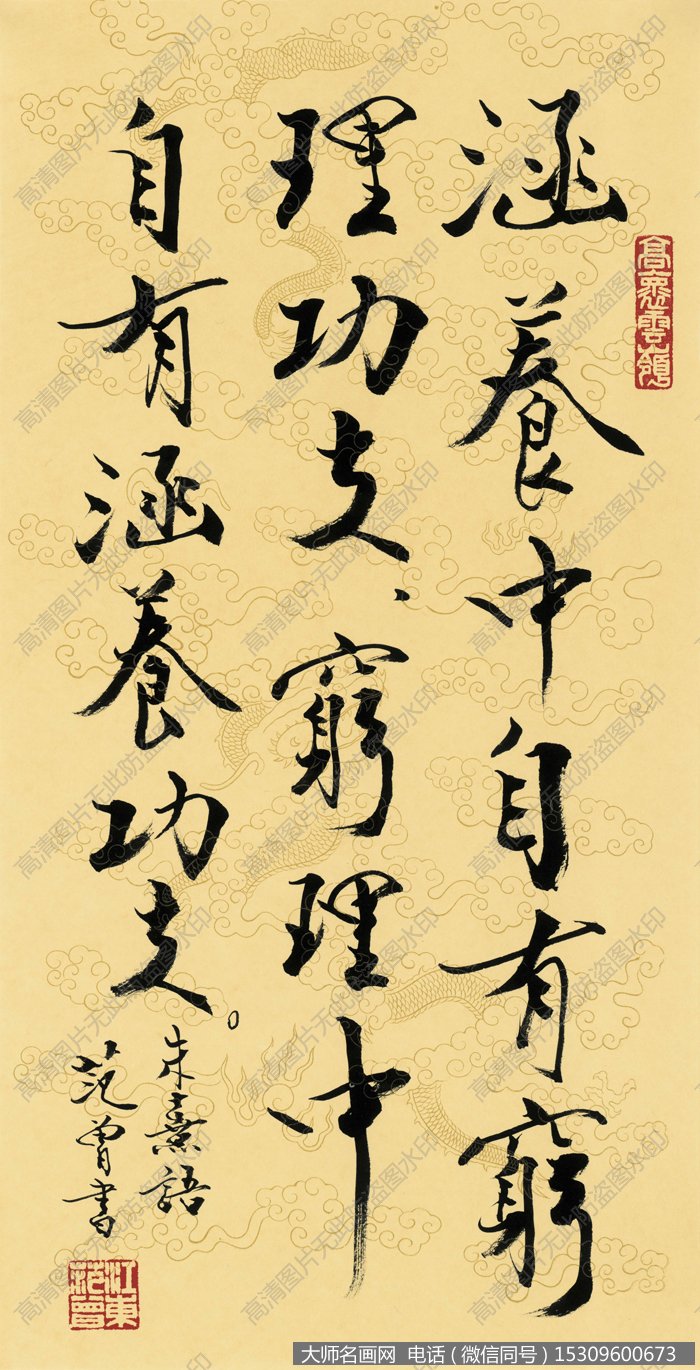 涵養中自有窮
理功夫、窮理中
自有涵養功夫。
朱熹語
范曾書
江東范曾
大师名画网 电话（微信同号）15309600673
高清图片无此防盗图水印